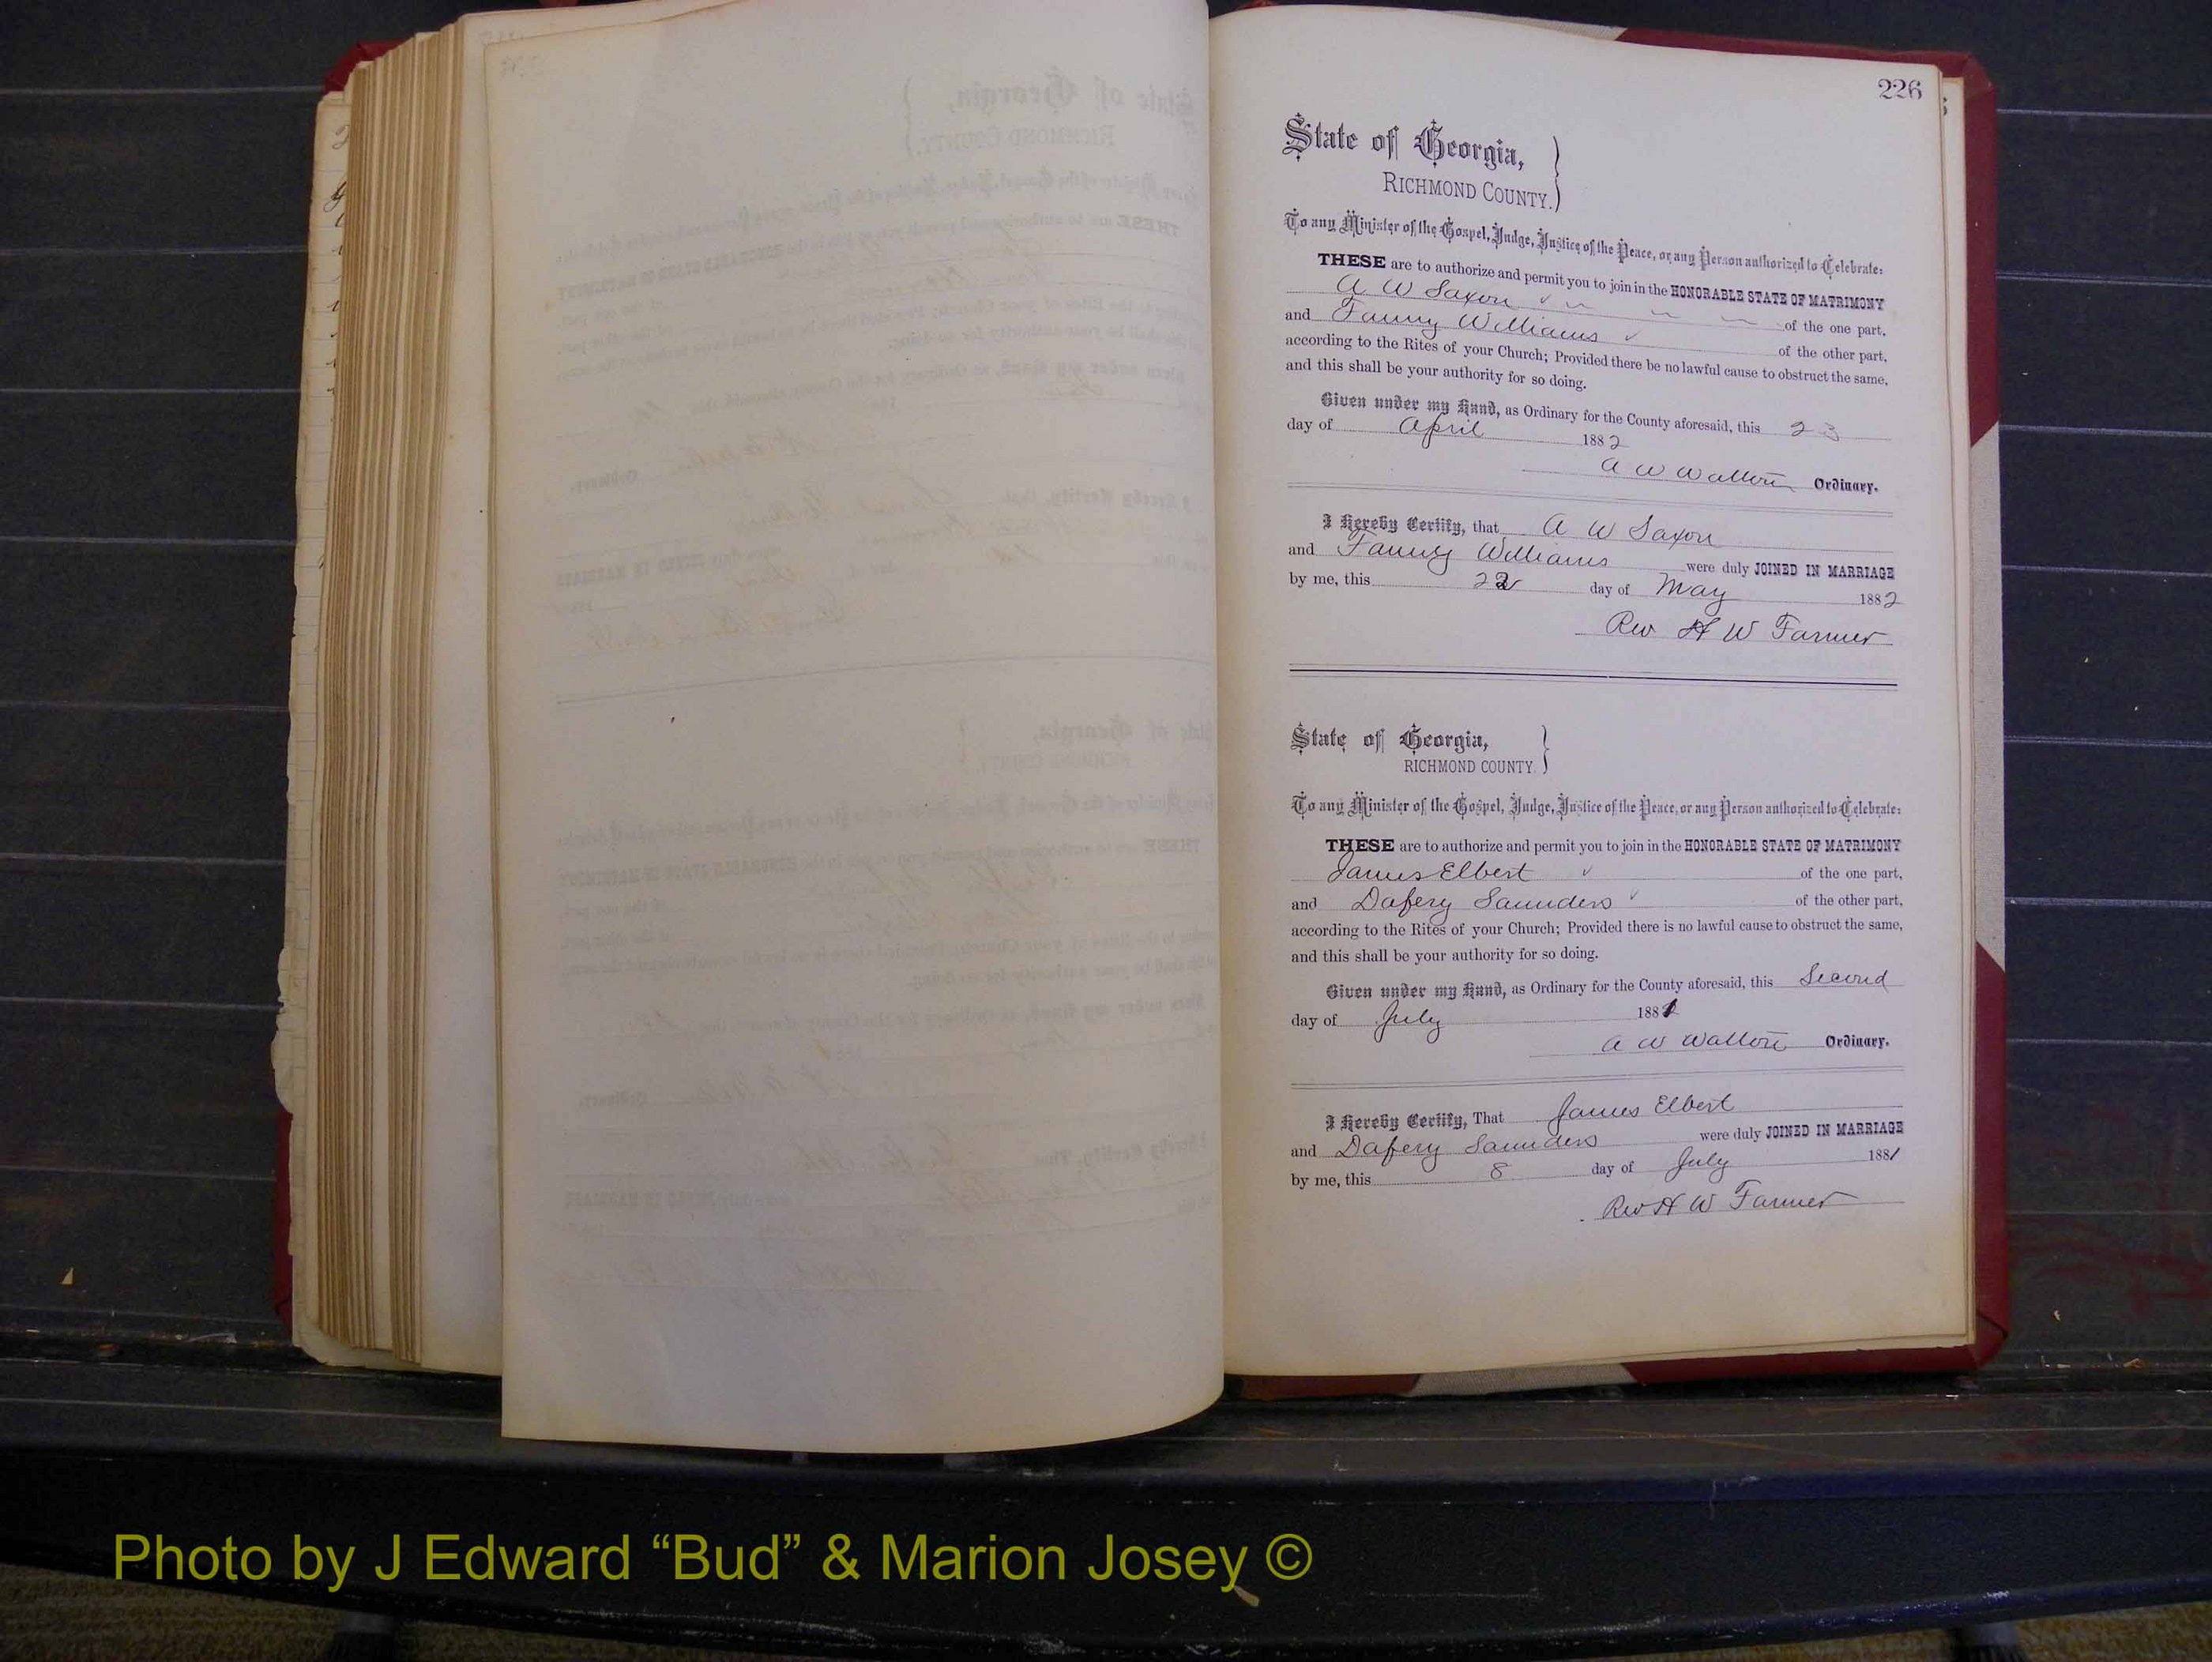 226
State of Georgia,
RICHMOND COUNTY.
To any Minister of the Gospel, Judge, Justice of the Peace, or any Person authorized to Celebrate:
THESE are to authorize and permit you to join in the HONORABLE STATE OF MATRIMONY
A W Saxon of the one part,
and Fanny Williams of the other part,
according to the Rites of your Church; Provided there be no lawful cause to obstruct the same,
and this shall be your authority for so doing.
Given under my Hand, as Ordinary for the County aforesaid, this 23
day of April 1882
A W Walton Ordinary.
I Hereby Certify, that A W Saxon
and Fanny Williams were duly JOINED IN MARRIAGE
by me, this 22 day of May 1882
Rev H W Farmer
State of Georgia,
RICHMOND COUNTY.
To any Minister of the Gospel, Judge, Justice of the Peace, or any Person authorized to Celebrate:
THESE are to authorize and permit you to join in the HONORABLE STATE OF MATRIMONY
James Elbert of the one part,
and Dafery Saunders of the other part,
according to the Rites of your Church; Provided there is no lawful cause to obstruct the same,
and this shall be your authority for so doing.
Given under my Hand, as Ordinary for the County aforesaid, this Second
day of July 1881
A W Walton Ordinary.
I Hereby Certify, That James Elbert
and Dafery Saunders were duly JOINED IN MARRIAGE
by me, this 8 day of July 1881
Rev H W Farmer
Photo by J Edward “Bud” & Marion Josey ©